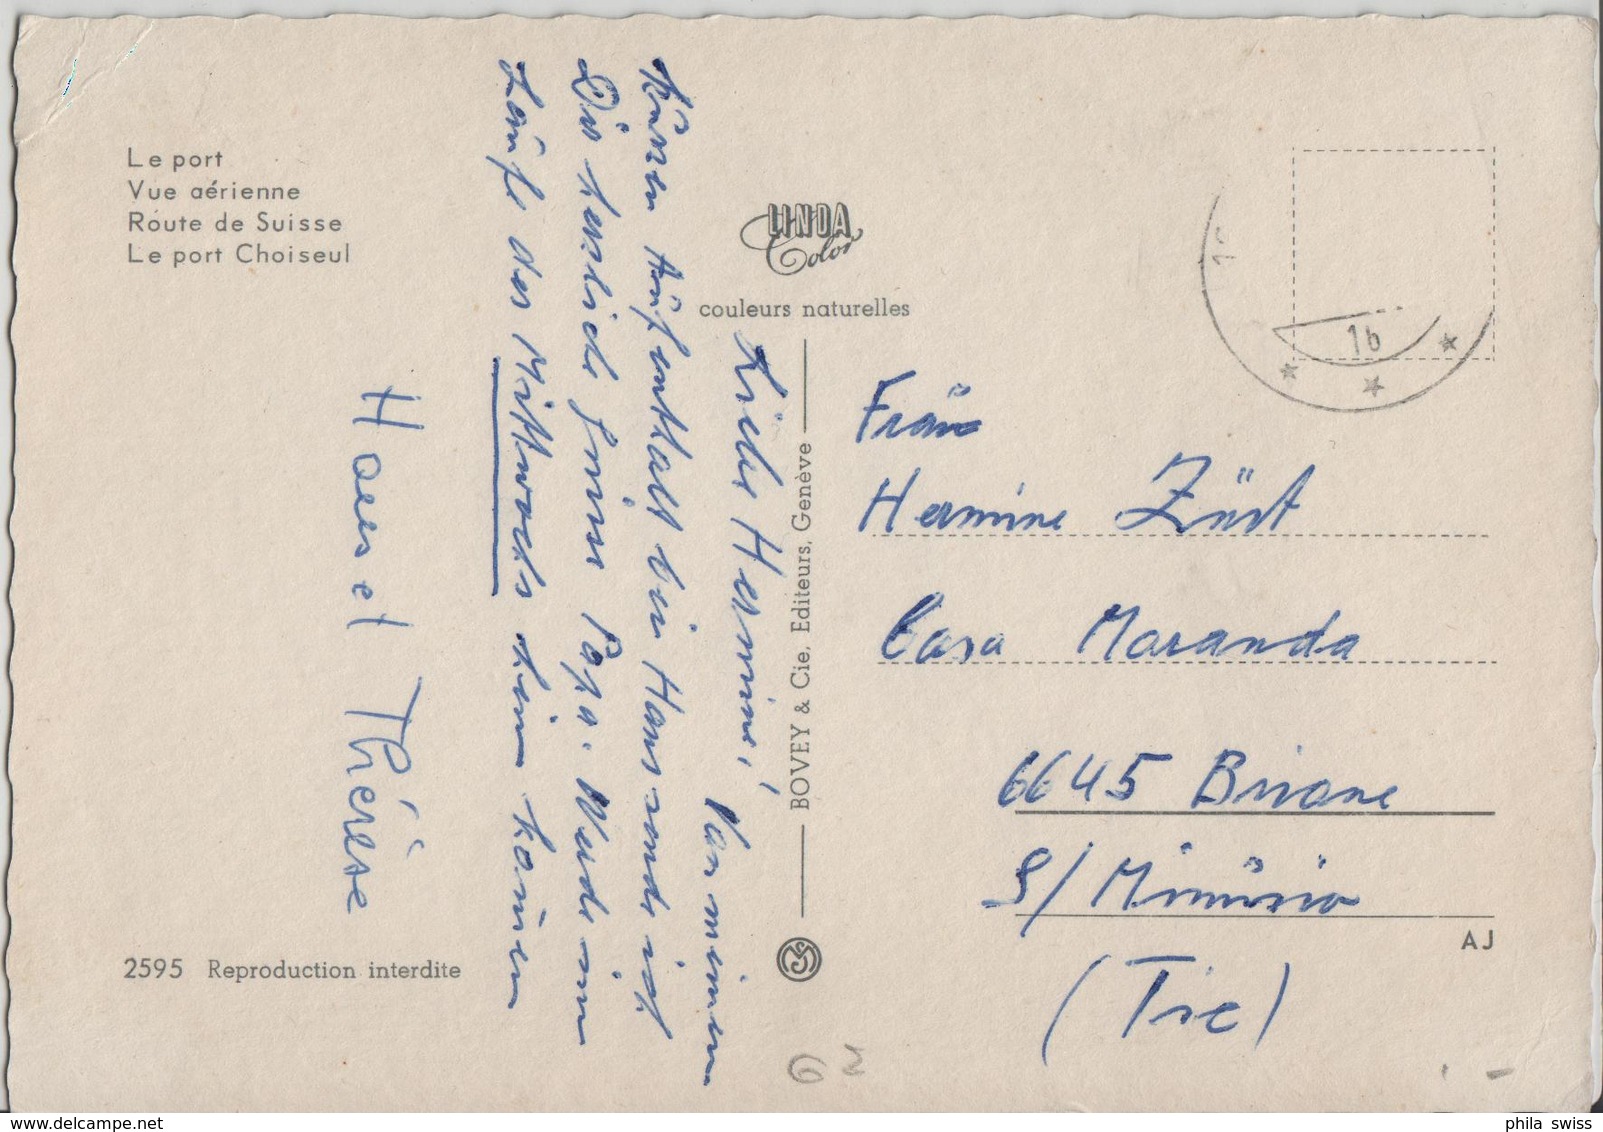 Le port
Vue aérienne
Route de Suisse
Le port Choiseul
LINDA
Color
couleurs naturelles
BOVEY & Cie, Editeurs, Genève
2595 Reproduction interdite
AJ
16
Liebe Hermine,
Von meinem
Kurzen Aufenthalt bei Hans sende ich
Dir herzliche Grüsse Papa. Werde im
Laufe des Mittwochs heim kommen
Hans et Thérèse
Frau
Hermine Züst
Casa Moranda
6645 Brione
S/ Minusio
(Tic)
phila swiss
www.delcampe.net